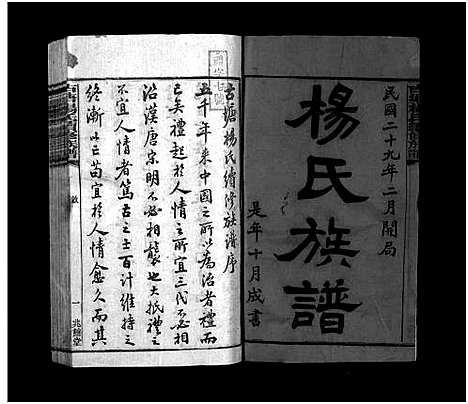 民國二十九年二月開局
楊氏族譜
是年十月成書
古塘楊氏續修族譜序
五千年來中國之所以為治者禮而
已矣禮起於人情之所宜三代不必相
沿漢唐宋明不必相襲也夫抵禮之
不宜人情者篤古之士百計維持之
終漸亡苟宜於人情愈久而其
敘
一